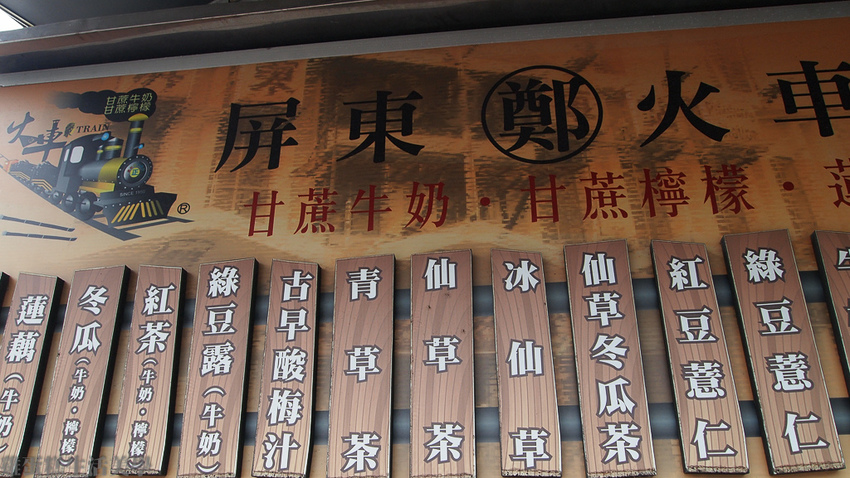 甘蔗牛奶
甘蔗檸檬
火車
TRAIN
®
屏東鄭火車
甘蔗牛奶·甘蔗檸檬·蓮
蓮藕(牛奶
冬瓜(牛奶·檸檬)
紅茶(牛奶·檸檬)
綠豆露(牛奶)
古早酸梅汁
青草茶
仙草茶
冰仙草
仙草冬瓜茶
紅豆薏仁
綠豆薏仁